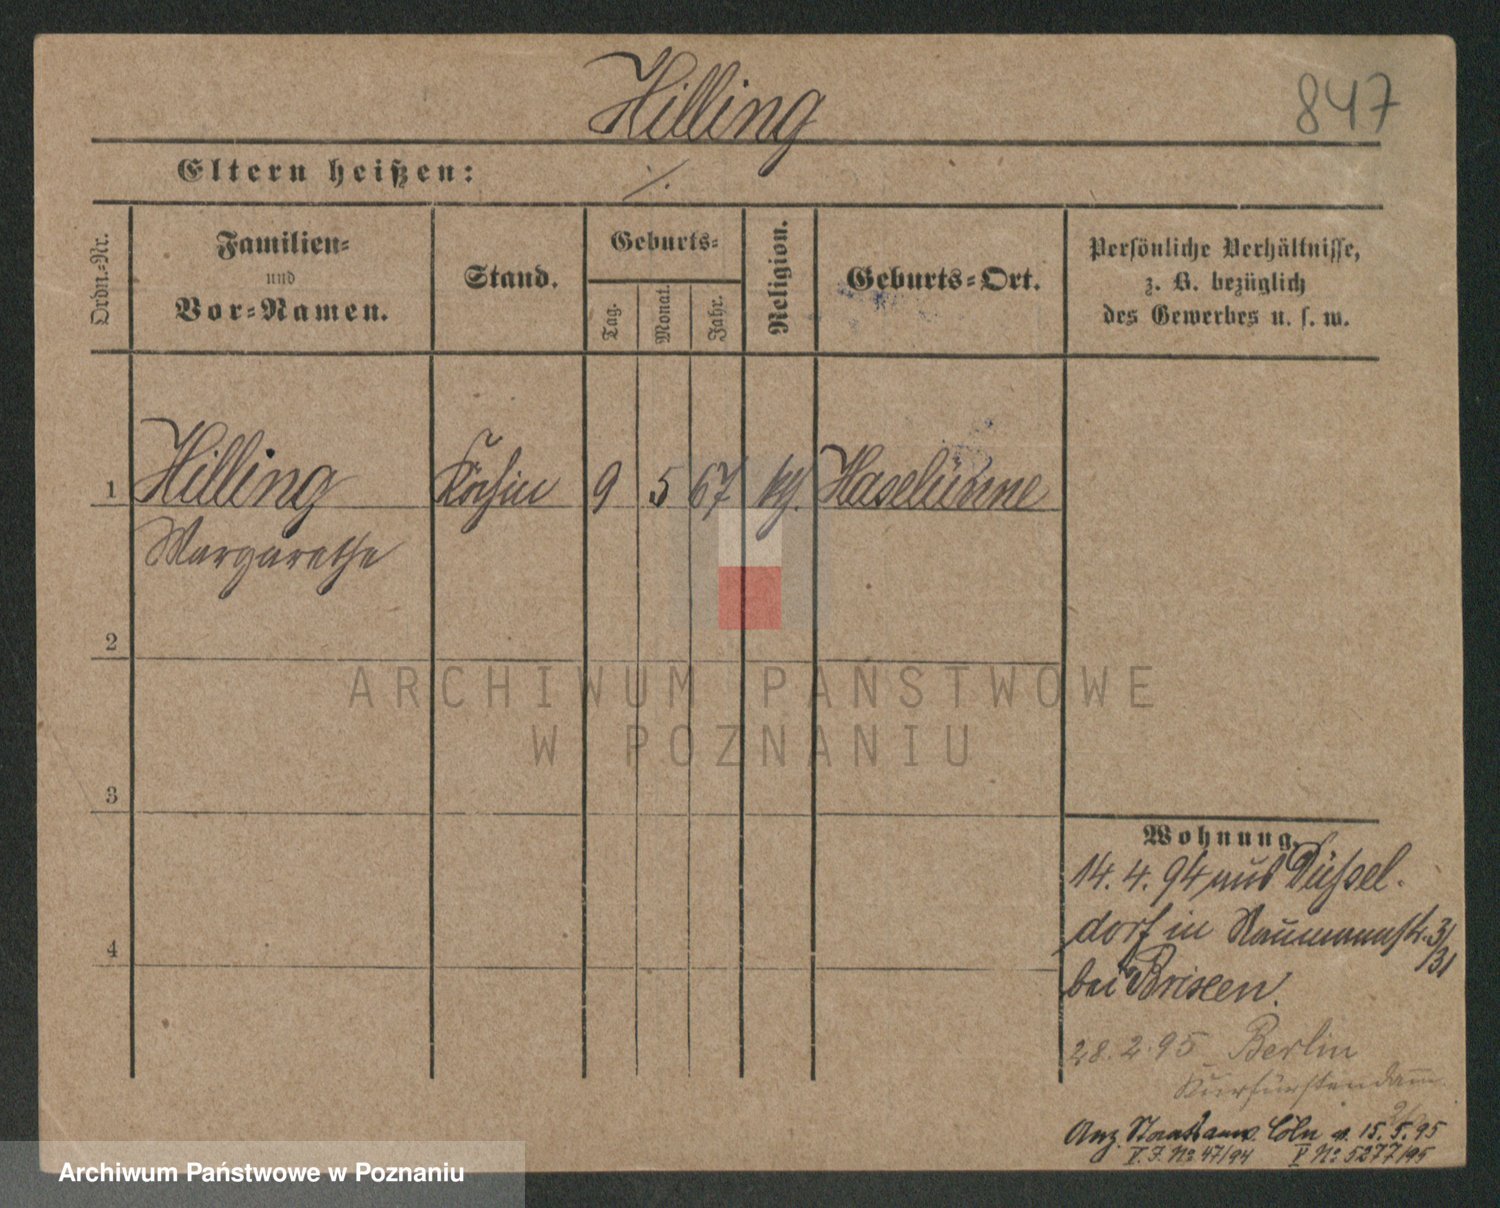 Hilling
847
Eltern heißen: ./.
Ordn.-Nr.
Familien-
und
Vor-Namen.
Stand.
Geburts-
Tag.
Monat.
Jahr.
Religion.
Geburts-Ort.
Persönliche Verhältnisse,
z. B. bezüglich
des Gewerbes u. s. w.
1 Hilling Köchin 9 5 67 kth. Haselünne
Margarethe
2
ARCHIWUM PAŃSTWOWE
W POZNANIU
3
Wohnung.
14. 4. 94 aus Düssel-
dorf in Naumannstr. 3/
31
4
bei Brixen.
28. 2. 95 Berlin
Kurfürstendamm
Anz. Staatsanw. Cöln v. 15. 5. 95
V. J. No 47/94 P No 5277/95
Archiwum Państwowe w Poznaniu